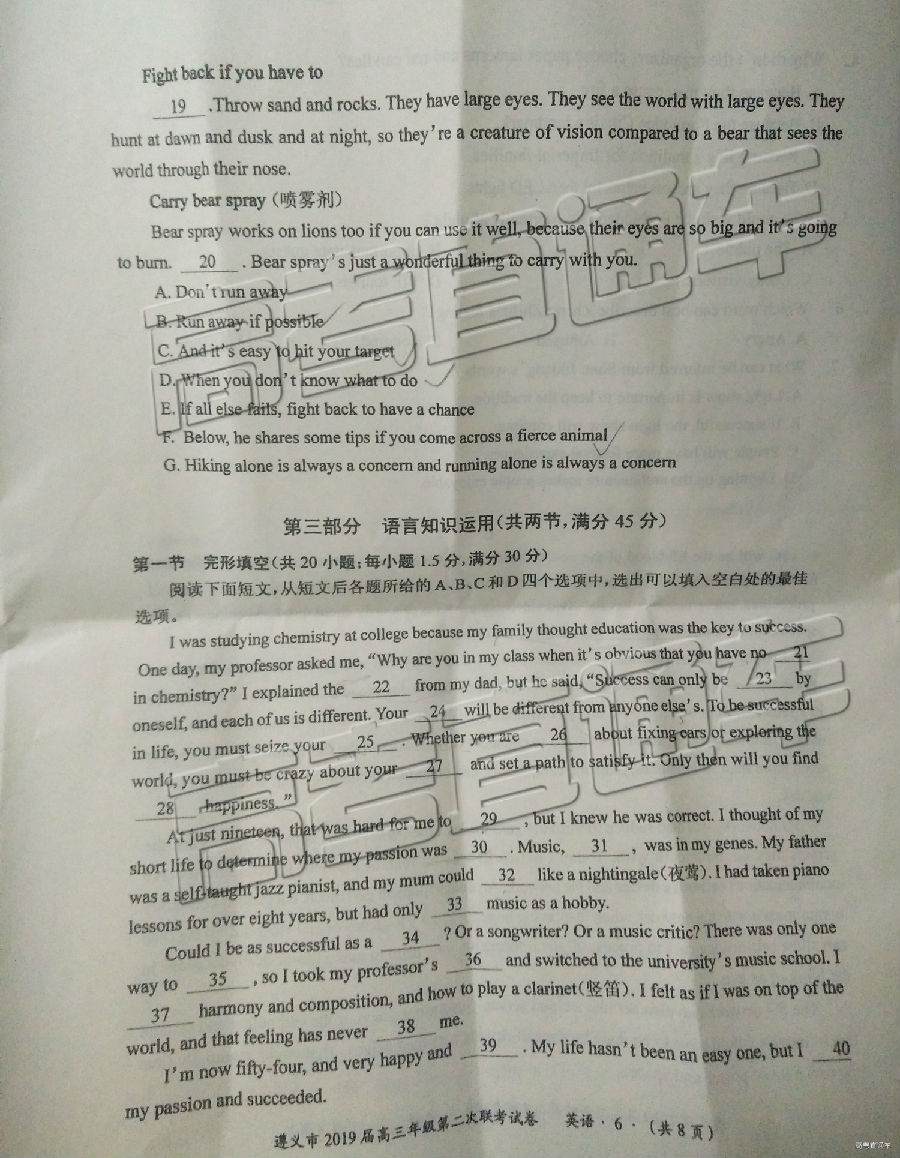 Fight back if you have to
19 .Throw sand and rocks. They have large eyes. They see the world with large eyes. They
hunt at dawn and dusk and at night, so they're a creature of vision compared to a bear that sees the
world through their nose.
Carry bear spray (喷雾剂)
Bear spray works on lions too if you can use it well, because their eyes are so big and it's going
to burn. 20 . Bear spray's just a wonderful thing to carry with you.
A. Don't run away
B. Run away if possible
C. And it's easy to hit your target
D. When you don't know what to do
E. If all else fails, fight back to have a chance
F. Below, he shares some tips if you come across a fierce animal
G. Hiking alone is always a concern and running alone is always a concern
第三部分 语言知识运用(共两节,满分 45 分)
第一节 完形填空(共 20 小题;每小题 1.5 分,满分 30 分)
阅读下面短文,从短文后各题所给的 A、B、C 和 D 四个选项中,选出可以填入空白处的最佳
选项。
I was studying chemistry at college because my family thought education was the key to success.
One day, my professor asked me, "Why are you in my class when it's obvious that you have no 21
in chemistry?" I explained the 22 from my dad, but he said, "Success can only be 23 by
oneself, and each of us is different. Your 24 will be different from anyone else's. To be successful
in life, you must seize your 25 . Whether you are 26 about fixing cars or exploring the
world, you must be crazy about your 27 and set a path to satisfy it. Only then will you find
28 happiness."
At just nineteen, that was hard for me to 29 , but I knew he was correct. I thought of my
short life to determine where my passion was 30 . Music, 31 , was in my genes. My father
was a self-taught jazz pianist, and my mum could 32 like a nightingale(夜莺). I had taken piano
lessons for over eight years, but had only 33 music as a hobby.
Could I be as successful as a 34 ? Or a songwriter? Or a music critic? There was only one
way to 35 , so I took my professor's 36 and switched to the university's music school. I
37 harmony and composition, and how to play a clarinet(竖笛). I felt as if I was on top of the
world, and that feeling has never 38 me.
I'm now fifty-four, and very happy and 39 . My life hasn't been an easy one, but I 40
my passion and succeeded.
遵义市 2019 届高三年级第二次联考试卷 英语·6·(共 8 页)
高考直通车
高考直通车